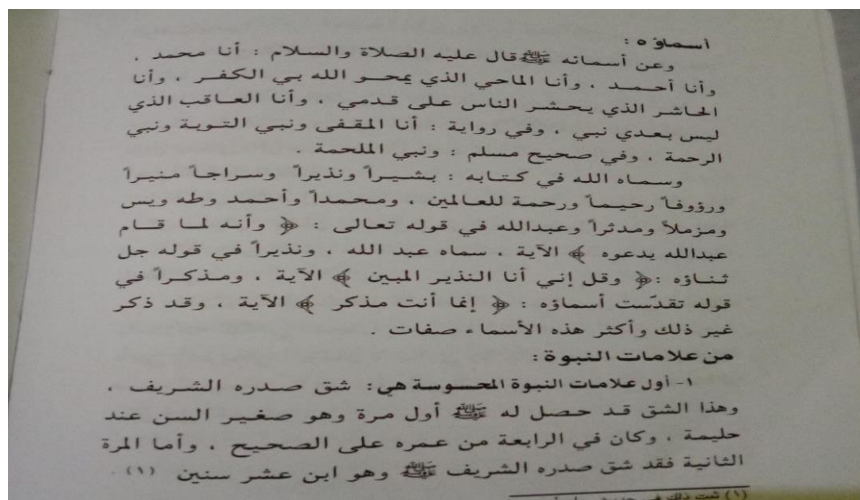 أسماؤه :
وعن أسمائه ﷺ قال عليه الصلاة والسلام : أنا محمد ،
وأنا أحمد ، وأنا الماحي الذي يمحو الله بي الكفر ، وأنا
الحاشر الذي يحشر الناس على قدمي ، وأنا العاقب الذي
ليس بعدي نبي ، وفي رواية : أنا المقفى ونبي التوبة ونبي
الرحمة ، وفي صحيح مسلم : ونبي الملحمة .
وسماه الله في كتابه : بشيراً ونذيراً وسراجاً منيراً
ورؤوفاً رحيماً ورحمة للعالمين ، ومحمداً وأحمد وطه ويس
ومزملاً ومدثراً وعبدالله في قوله تعالى : ﴿ وأنه لما قام
عبدالله يدعوه ﴾ الآية ، سماه عبد الله ، ونذيراً في قوله جل
ثناؤه : ﴿ وقل إني أنا النذير المبين ﴾ الآية ، ومذكراً في
قوله تقدّست أسماؤه : ﴿ إنما أنت مذكر ﴾ الآية ، وقد ذكر
غير ذلك وأكثر هذه الأسماء صفات .
من علامات النبوة :
١- أول علامات النبوة المحسوسة هي : شق صدره الشريف ،
وهذا الشق قد حصل له ﷺ أول مرة وهو صغير السن عند
حليمة ، وكان في الرابعة من عمره على الصحيح ، وأما المرة
الثانية فقد شق صدره الشريف ﷺ وهو ابن عشر سنين (١) .
(١) ثبت ذلك في